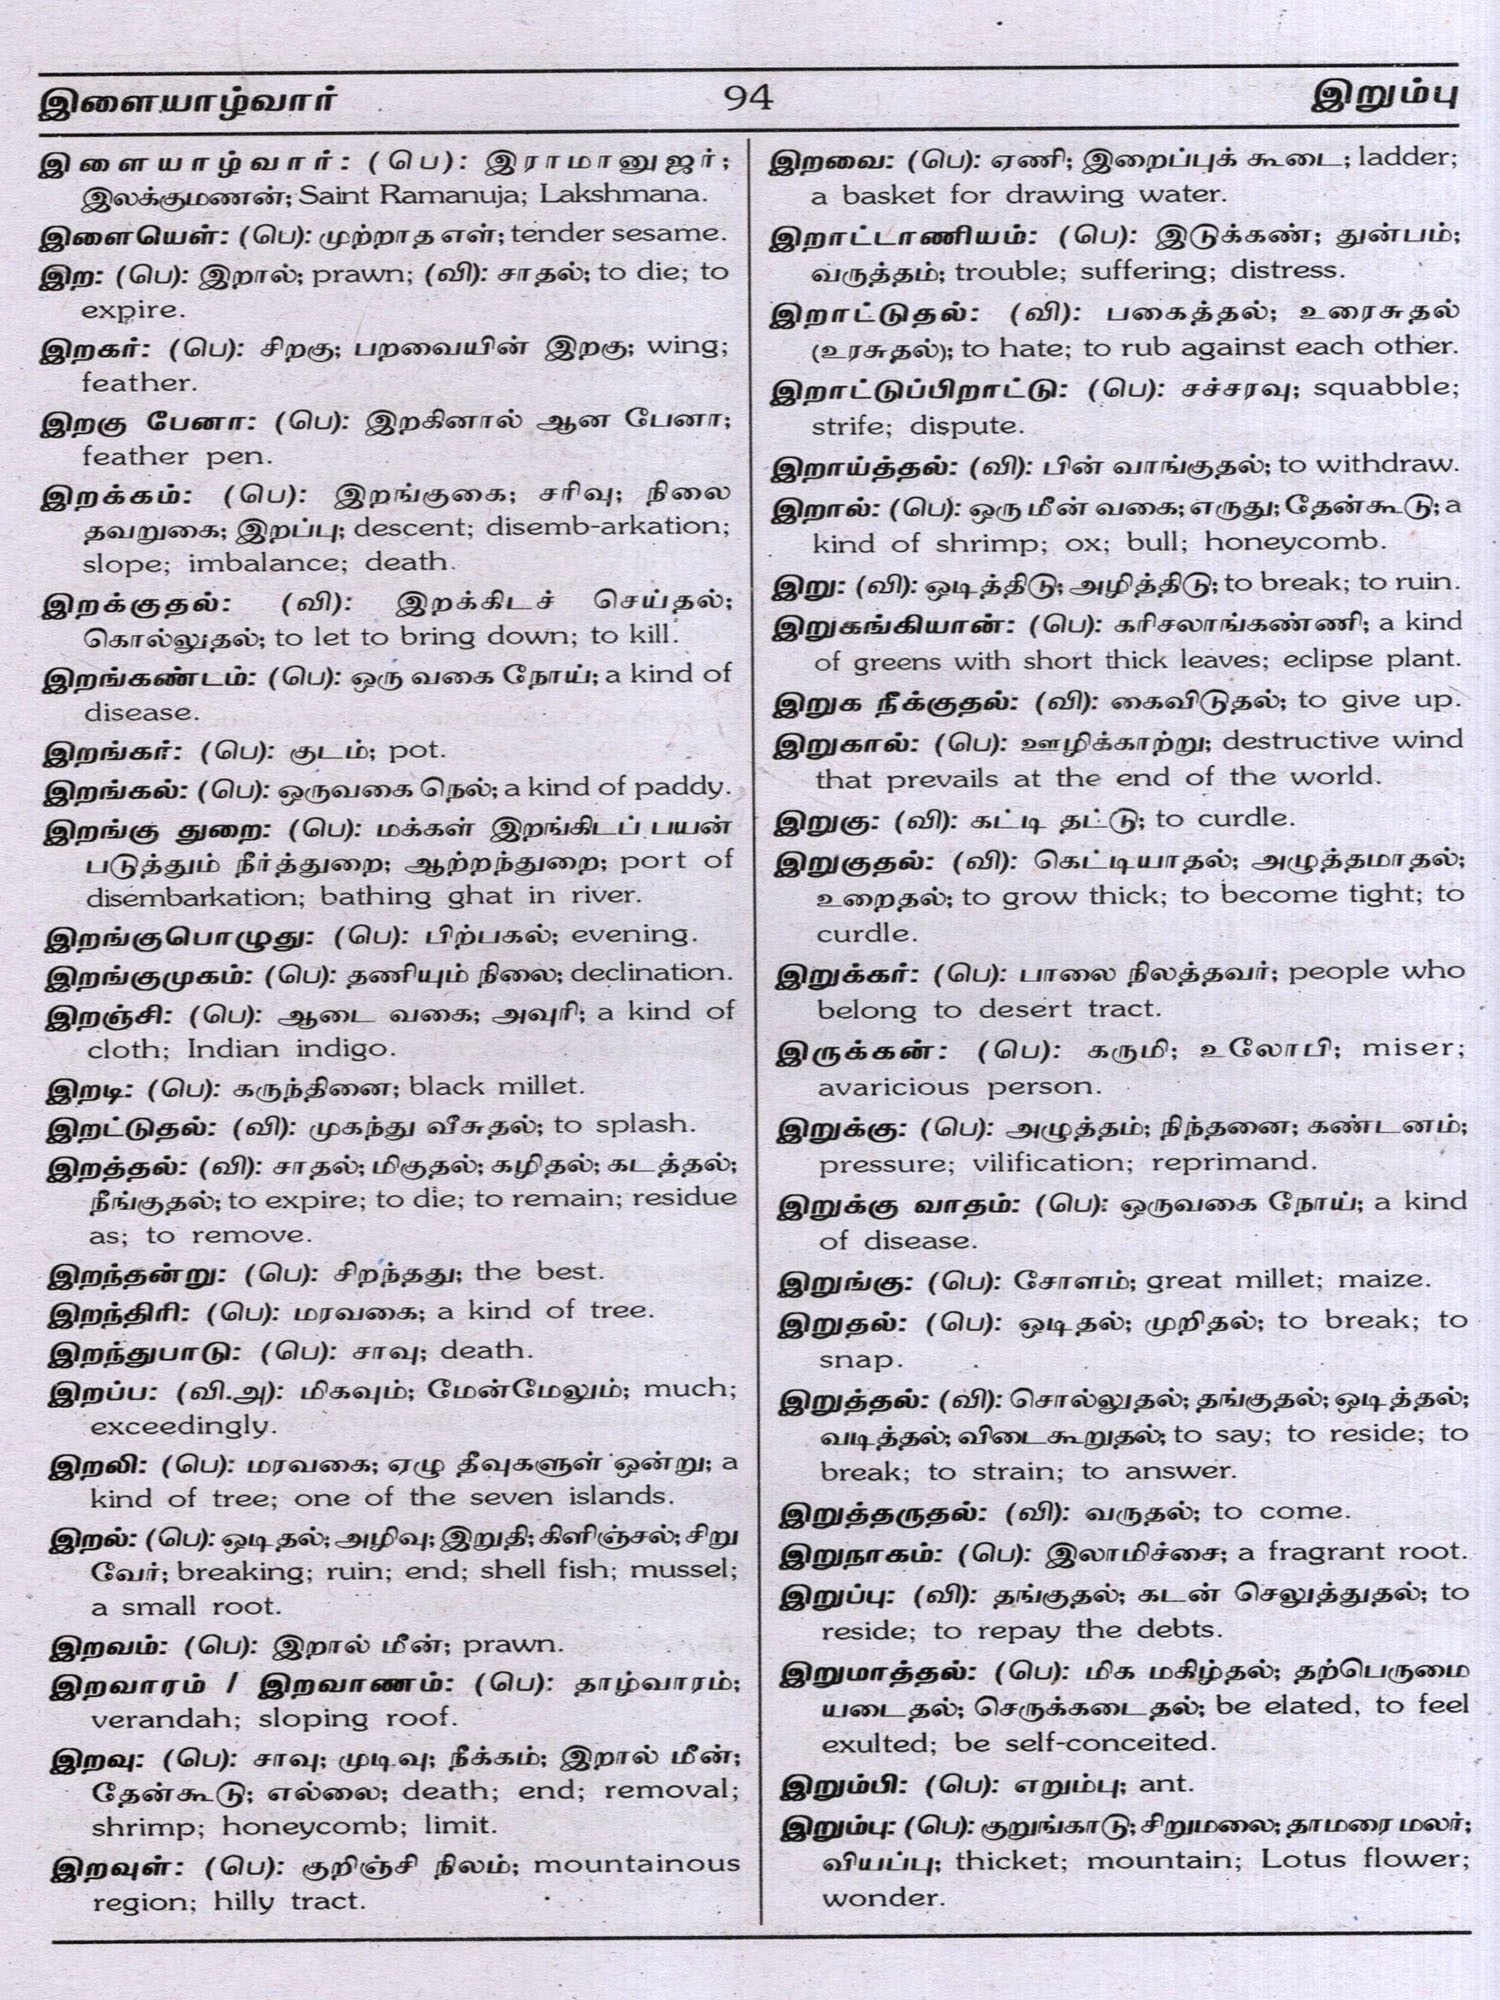 இளையாழ்வார் 94 இறும்பு
இளையாழ்வார்: (பெ): இராமானுஜர்;
இலக்குமணன்; Saint Ramanuja; Lakshmana.
இளையெள்: (பெ): முற்றாத எள்; tender sesame.
இற: (பெ): இறால்; prawn; (வி): சாதல்; to die; to
expire.
இறகர்: (பெ): சிறகு; பறவையின் இறகு; wing;
feather.
இறகு பேனா: (பெ): இறகினால் ஆன பேனா;
feather pen.
இறக்கம்: (பெ): இறங்குகை; சரிவு; நிலை
தவறுகை; இறப்பு; descent; disemb-arkation;
slope; imbalance; death.
இறக்குதல்: (வி): இறக்கிடச் செய்தல்;
கொல்லுதல்; to let to bring down; to kill.
இறங்கண்டம்: (பெ): ஒரு வகை நோய்; a kind of
disease.
இறங்கர்: (பெ): குடம்; pot.
இறங்கல்: (பெ): ஒருவகை நெல்; a kind of paddy.
இறங்கு துறை: (பெ): மக்கள் இறங்கிடப் பயன்
படுத்தும் நீர்த்துறை; ஆற்றந்துறை; port of
disembarkation; bathing ghat in river.
இறங்குபொழுது: (பெ): பிற்பகல்; evening.
இறங்குமுகம்: (பெ): தணியும் நிலை; declination.
இறஞ்சி: (பெ): ஆடை வகை; அவுரி; a kind of
cloth; Indian indigo.
இறடி: (பெ): கருந்தினை; black millet.
இறட்டுதல்: (வி): முகந்து வீசுதல்; to splash.
இறத்தல்: (வி): சாதல்; மிகுதல்; கழிதல்; கடத்தல்;
நீங்குதல்; to expire; to die; to remain; residue
as; to remove.
இறந்தன்று: (பெ): சிறந்தது; the best.
இறந்திரி: (பெ): மரவகை; a kind of tree.
இறந்துபாடு: (பெ): சாவு; death.
இறப்ப: (வி.அ): மிகவும்; மேன்மேலும்; much;
exceedingly.
இறலி: (பெ): மரவகை; ஏழு தீவுகளுள் ஒன்று; a
kind of tree; one of the seven islands.
இறல்: (பெ): ஒடிதல்; அழிவு; இறுதி; கிளிஞ்சல்; சிறு
வேர்; breaking; ruin; end; shell fish; mussel;
a small root.
இறவம்: (பெ): இறால் மீன்; prawn.
இறவாரம் / இறவாணம்: (பெ): தாழ்வாரம்;
verandah; sloping roof.
இறவு: (பெ): சாவு; முடிவு; நீக்கம்; இறால் மீன்;
தேன்கூடு; எல்லை; death; end; removal;
shrimp; honeycomb; limit.
இறவுள்: (பெ): குறிஞ்சி நிலம்; mountainous
region; hilly tract.
இறவை: (பெ): ஏணி; இறைப்புக் கூடை; ladder;
a basket for drawing water.
இறாட்டாணியம்: (பெ): இடுக்கண்; துன்பம்;
வருத்தம்; trouble; suffering; distress.
இறாட்டுதல்: (வி): பகைத்தல்; உரைசுதல்
(உரசுதல்); to hate; to rub against each other.
இறாட்டுப்பிறாட்டு: (பெ): சச்சரவு; squabble;
strife; dispute.
இறாய்த்தல்: (வி): பின் வாங்குதல்; to withdraw.
இறால்: (பெ): ஒரு மீன் வகை; எருது; தேன்கூடு; a
kind of shrimp; ox; bull; honeycomb.
இறு: (வி): ஒடித்திடு; அழித்திடு; to break; to ruin.
இறுகங்கியான்: (பெ): கரிசலாங்கண்ணி; a kind
of greens with short thick leaves; eclipse plant.
இறுக நீக்குதல்: (வி): கைவிடுதல்; to give up.
இறுகால்: (பெ): ஊழிக்காற்று; destructive wind
that prevails at the end of the world.
இறுகு: (வி): கட்டி தட்டு; to curdle.
இறுகுதல்: (வி): கெட்டியாதல்; அழுத்தமாதல்;
உறைதல்; to grow thick; to become tight; to
curdle.
இறுக்கர்: (பெ): பாலை நிலத்தவர்; people who
belong to desert tract.
இருக்கன்: (பெ): கருமி; உலோபி; miser;
avaricious person.
இறுக்கு: (பெ): அழுத்தம்; நிந்தனை; கண்டனம்;
pressure; vilification; reprimand.
இறுக்கு வாதம்: (பெ): ஒருவகை நோய்; a kind
of disease.
இறுங்கு: (பெ): சோளம்; great millet; maize.
இறுதல்: (பெ): ஒடிதல்; முறிதல்; to break; to
snap.
இறுத்தல்: (வி): சொல்லுதல்; தங்குதல்; ஒடித்தல்;
வடித்தல்; விடைகூறுதல்; to say; to reside; to
break; to strain; to answer.
இறுத்தருதல்: (வி): வருதல்; to come.
இறுநாகம்: (பெ): இலாமிச்சை; a fragrant root.
இறுப்பு: (வி): தங்குதல்; கடன் செலுத்துதல்; to
reside; to repay the debts.
இறுமாத்தல்: (பெ): மிக மகிழ்தல்; தற்பெருமை
யடைதல்; செருக்கடைதல்; be elated, to feel
exulted; be self-conceited.
இறும்பி: (பெ): எறும்பு; ant.
இறும்பு: (பெ): குறுங்காடு; சிறுமலை; தாமரை மலர்;
வியப்பு; thicket; mountain; Lotus flower;
wonder.